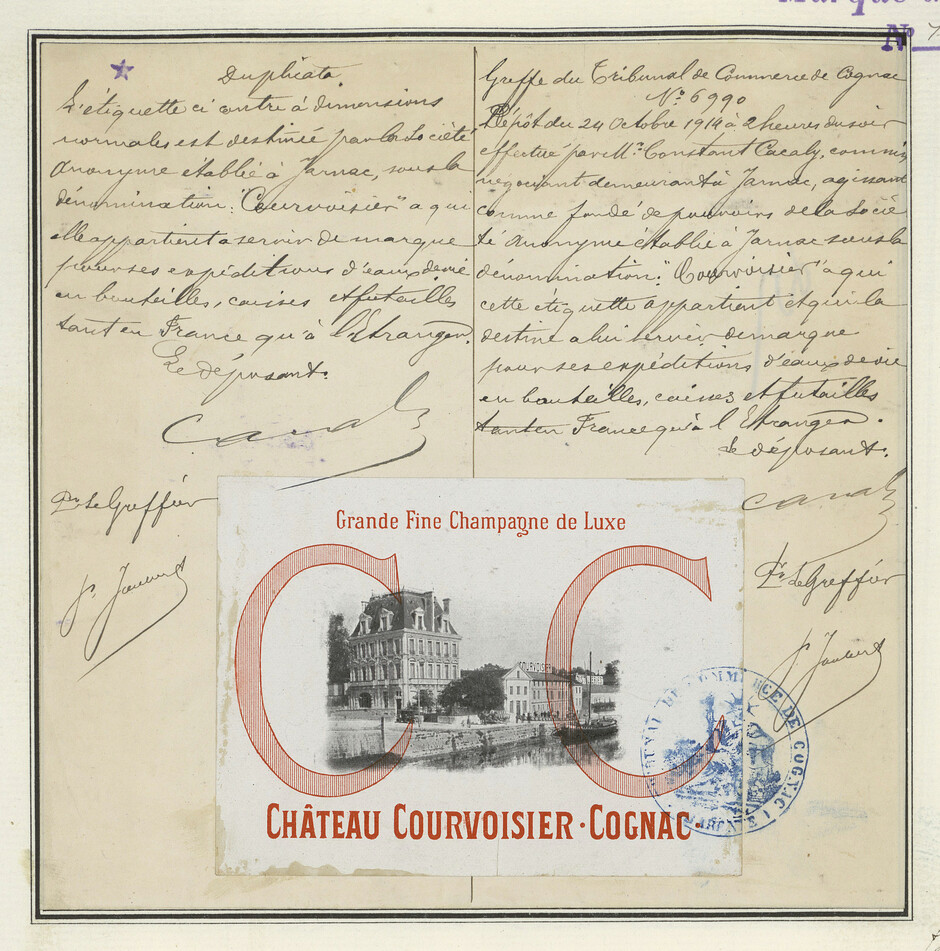 Marque d
No
Duplicata
L'étiquette ci contre à dimensions
normales est destinée par la Société
Anonyme établie à Jarnac, sous la
dénomination: "Courvoisier" a qui
elle appartient a servir de marque
pour ses expéditions d'eaux de vie
en bouteilles, caisses et futailles
tant en France qu'à l'étranger.
Le déposant.
Pr le Greffier
Greffe du Tribunal de Commerce de Cognac
No. 6990
Dépôt du 24 Octobre 1914 à 2 heures du soir
effectué par Mr. Constant Cacaly, commis
négociant demeurant à Jarnac, agissant
comme fondé de pouvoirs de la Socié
té Anonyme établie à Jarnac sous la
dénomination: "Courvoisier" à qui
cette étiquette appartient et qui la
destine a lui servir de marque
pour ses expéditions d'eaux de vie
en bouteilles, caisses et futailles
tant en France qu'à l'Etranger.
Le déposant.
Pr le Greffier
Grande Fine Champagne de Luxe
C C
COURVOISIER
CHÂTEAU COURVOISIER · COGNAC
TRIBUNAL DE COMMERCE DE COGNAC